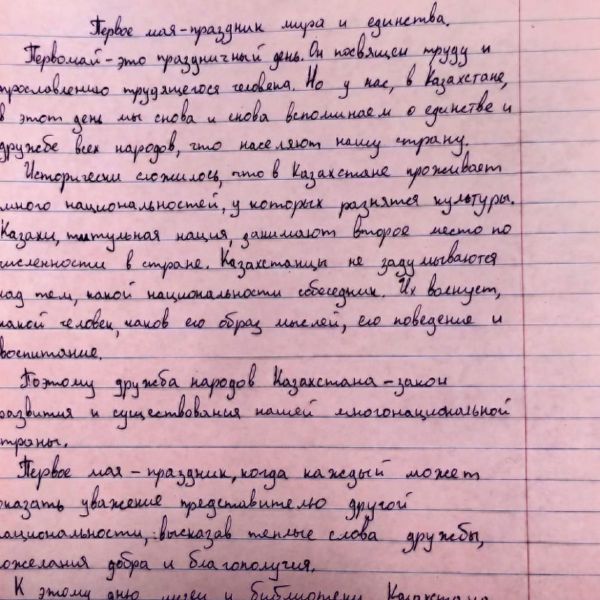 Первое мая-праздник мира и единства.
Первомай-это праздничный день. Он посвящен труду и
прославлению трудящегося человека. Но у нас, в Казахстане,
в этот день мы снова и снова вспоминаем о единстве и
дружбе всех народов, что населяют нашу страну.
Исторически сложилось, что в Казахстане проживает
много национальностей, у которых разнятся культуры.
Казахи, титульная нация, занимают второе место по
численности в стране. Казахстанцы не задумываются
над тем, какой национальности собеседник. Их волнует,
какой человек, каков его образ мыслей, его поведение и
воспитание.
Поэтому дружба народов Казахстана-закон
развития и существования нашей многонациональной
страны.
Первое мая-праздник, когда каждый может
оказать уважение представителю другой
национальности, высказав теплые слова дружбы,
пожелания добра и благополучия.
К этому дню музеи и библиотеки Казахстана